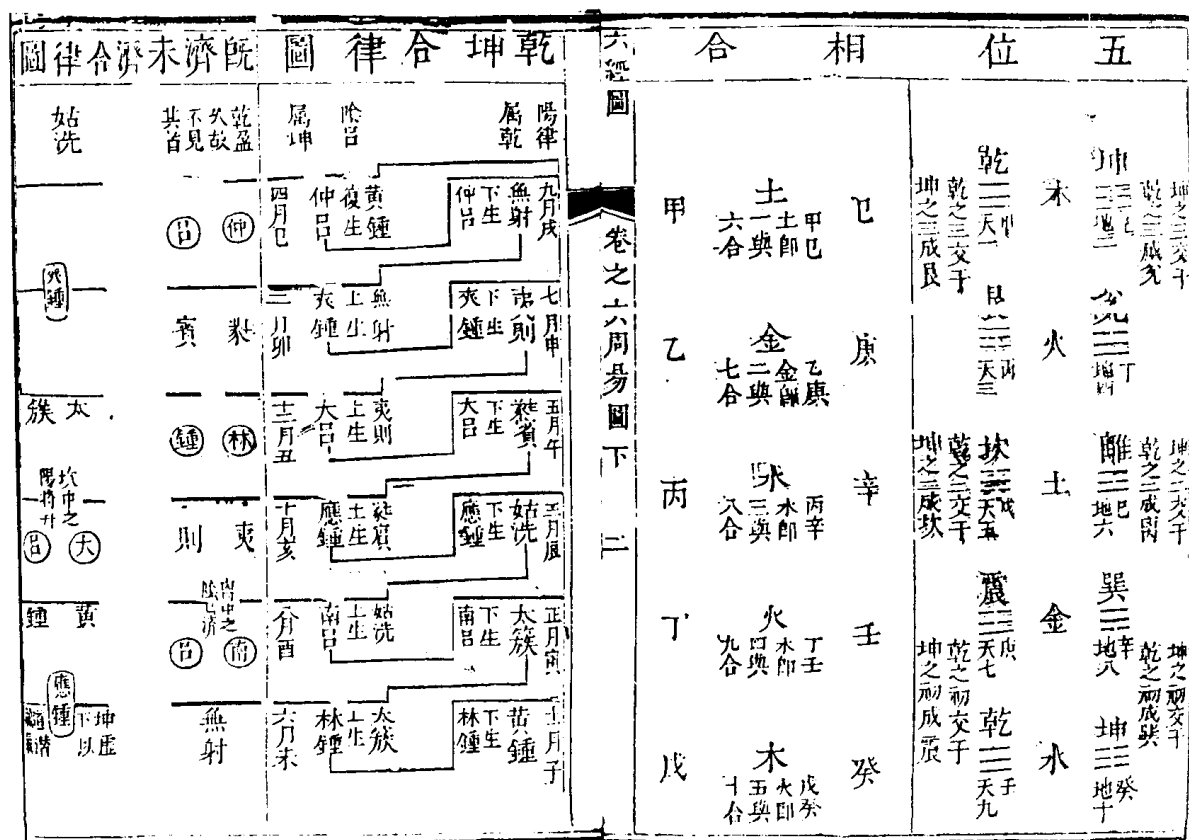 五位相合
坤之三交于
乾之三成兌
坤 乙
地二
兌 丁
地四
坤之二交于
乾之二成离
離 巳
地六
巽 辛
地八
坤之初交于
乾之初成巽
坤 癸
地十
木
火
土
金
水
乾 甲
天一
艮 丙
天三
乾之三交于
坤之三成艮
坎 戊
天五
乾之二交于
坤之二成坎
震 庚
天七
乾之初交于
坤之初成震
乾 壬
天九
巳
庚
辛
壬
癸
土
甲巳
土卽
一與
六合
金
乙庚
金卽
二與
七合
水
丙辛
水卽
三與
八合
火
丁壬
木卽
四與
九合
木
戊癸
火卽
五與
十合
甲
乙
丙
丁
戊
六經圖
卷之六周易圖下
二
乾坤合律圖
陽律
屬乾
陰呂
屬坤
九月戌
無射
下生
仲呂
黃鍾
復生
仲呂
四月巳
七月申
夷則
下生
夾鍾
無射
上生
夾鍾
二月卯
五月午
蕤賓
下生
大呂
夷則
上生
大呂
十二月丑
三月辰
姑洗
下生
應鍾
蕤賓
上生
應鍾
十月亥
正月寅
太簇
下生
南呂
姑洗
上生
南呂
八月酉
十一月子
黃鍾
下生
林鍾
太簇
上生
林鍾
六月未
既濟未濟合律圖
乾盈
故
不見
其首
仲呂
蕤賓
林鍾
夷則
南呂
無射
姑洗
夾鍾
太簇
坎中之
陽將升
大呂
黃鍾
應鍾
坤虛
下以